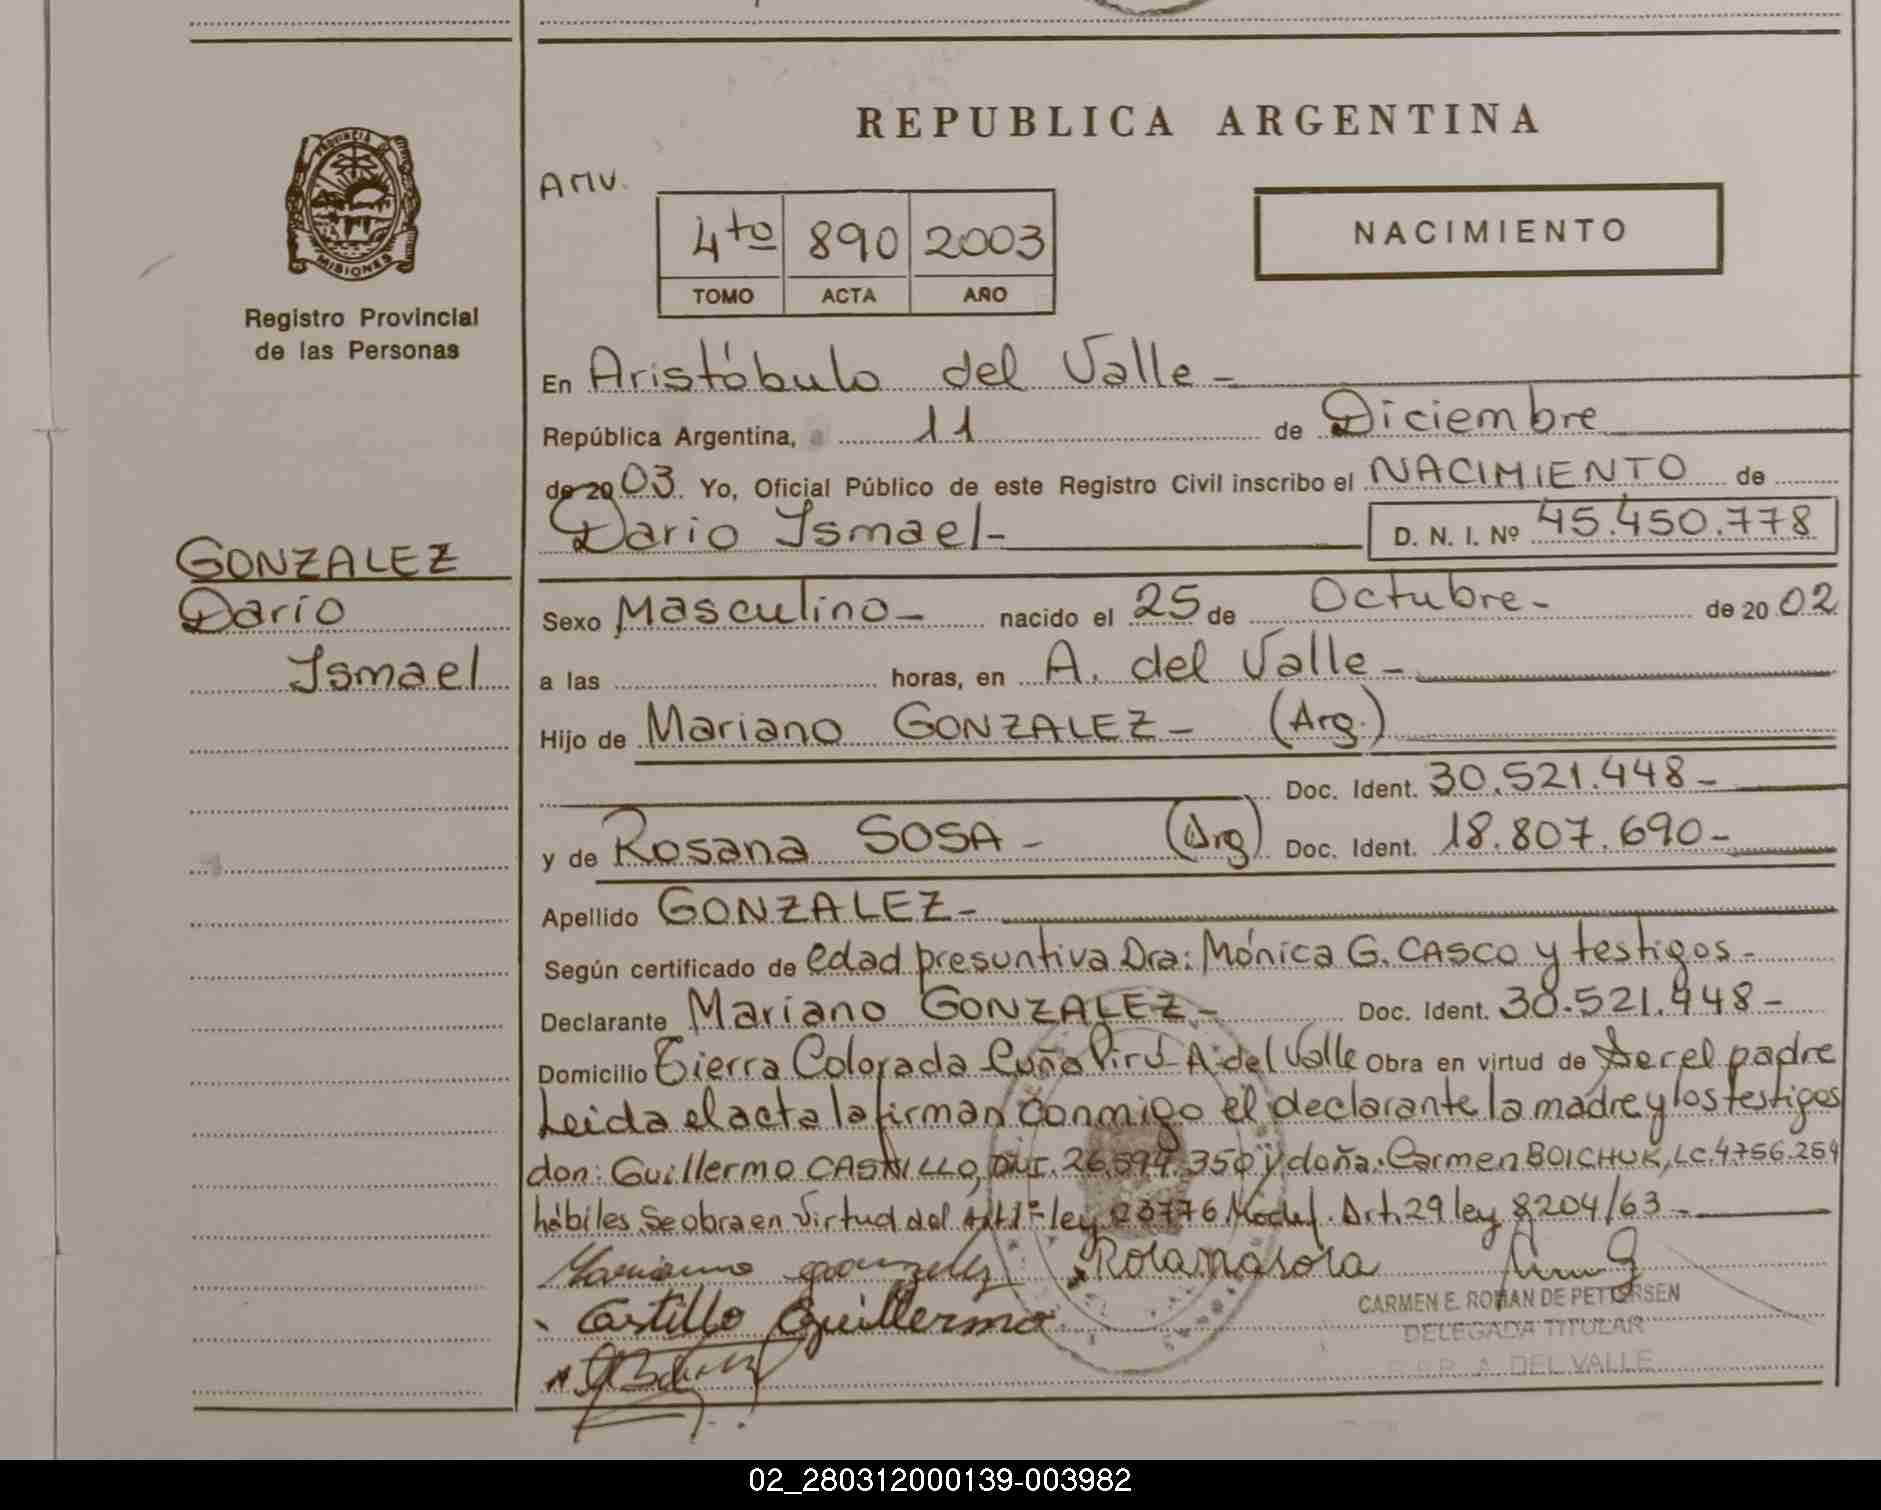 PROVINCIA DE
MISIONES
Registro Provincial
de las Personas
GONZALEZ
Darío
Ismael
REPUBLICA ARGENTINA
AMV.
NACIMIENTO
4to 890 2003
TOMO ACTA AÑO
En Aristóbulo del Valle -
República Argentina, a 11 de Diciembre
de 20 03. Yo, Oficial Público de este Registro Civil inscribo el NACIMIENTO de
Dario Ismael -
D. N. I. Nº 45.450.778
Sexo Masculino - nacido el 25 de Octubre - de 20 02
a las horas, en A. del Valle -
Hijo de Mariano GONZALEZ - (Arg.)
Doc. Ident. 30.521.448 -
y de Rosana SOSA - (Arg) Doc. Ident. 18.807.690 -
Apellido GONZALEZ -
Según certificado de edad presuntiva Dra: Mónica G. CASCO y testigos -
Declarante Mariano GONZALEZ - Doc. Ident. 30.521.448 -
Domicilio Tierra Colorada Cuña Pirú A. del Valle Obra en virtud de Ser el padre
Leida el acta la firman conmigo el declarante la madre y los testigos
don: Guillermo CASTILLO, DNI. 26.594.350 y doña: Carmen BOICHUK, LC. 4.756.254
hábiles. Se obra en Virtud del Art 1º ley 23776 Modif. Art. 29 ley 8204/63 -
Mariano gonzalez Rosana sosa
CARMEN E. ROMAN DE PETTERSEN
Castillo Guillermo
DELEGADA TITULAR
A. DEL VALLE
02_280312000139-003982